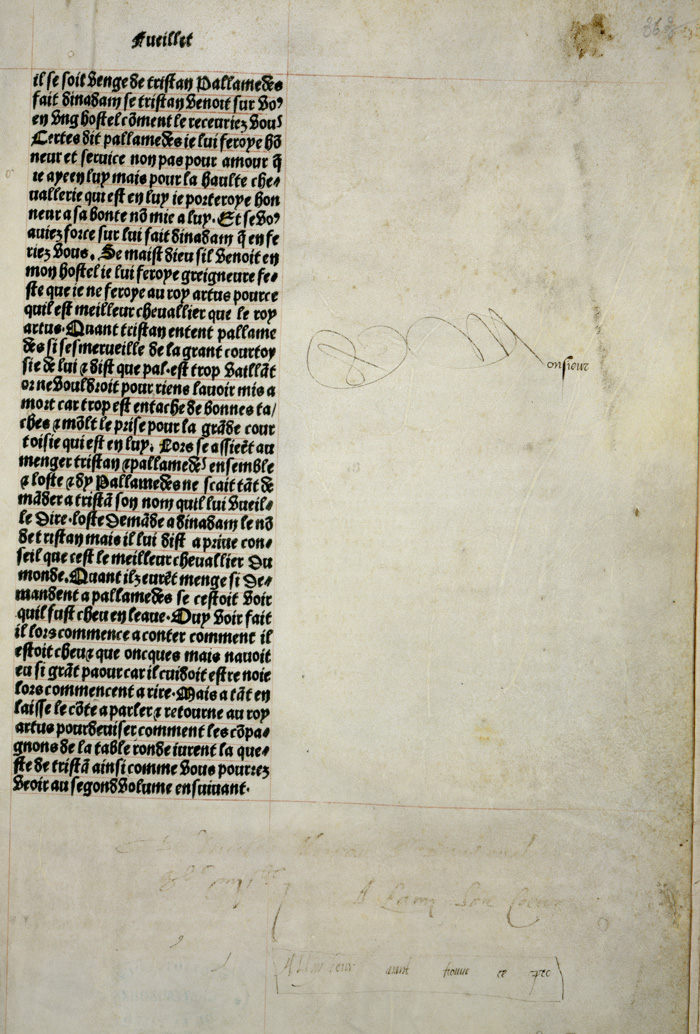 Fueillet
il se soit venge de tristan Pallamedes
fait dinadam se tristan venoit sur voꝰ
en vng hostel cõment le receuriez vous
Certes dit pallamedes ie lui feroye hõ
neur et seruice non pas pour amour q̃
ie aye en luy mais pour la haulte che⸗
uallerie qui est en luy ie porteroye hon
neur a sa bonte nõ mie a luy. Et se voꝰ
auiez force sur lui fait dinadam q̃ en fe
riez vous. Se maist dieu sil venoit en
mon hostel ie lui feroye greigneure fe⸗
ste que ie ne feroye au roy artus pource
quil est meilleur cheuallier que le roy
artus. Quant tristan entent pallame
des si sesmerueille de la grant courtoy
sie de lui ⁊ dist que pal. est trop vaillãt
or ne vouldroit pour riens lauoir mis a
mort car trop est entache de bonnes ta/
ches ⁊ mõlt le prise pour la grãde cour
toisie qui est en luy. Lors se assieẽt au
menger tristan ⁊ pallamedes ensemble
⁊ loste ⁊ dy Pallamedes ne scait tãt de
mãder a tristã son nom quil lui vueil⸗
le dire. loste demãde a dinadam le nõ
de tristan mais il lui dist a priue con⸗
seil que cest le meilleur cheuallier du
monde. Quant ilz eurẽt menge si de⸗
mandent a pallamedes se cestoit voir
quil fust cheu en leaue. Ouy voir fait
il lors commence a conter comment il
estoit cheu ⁊ que oncques mais nauoit
eu si grãt paour car il cuidoit estre noie
lors commencent a rire. Mais a tãt en
laisse le cõte a parler ⁊ retourne au roy
artus pour deuiser comment les cõpa⸗
gnons de la table ronde iurent la que⸗
ste de tristã ainsi comme vous pourrez
veoir au segond volume ensuiuant.
Monsieur
A Lamy Son Coeur
Monsieur aiant trouue ce